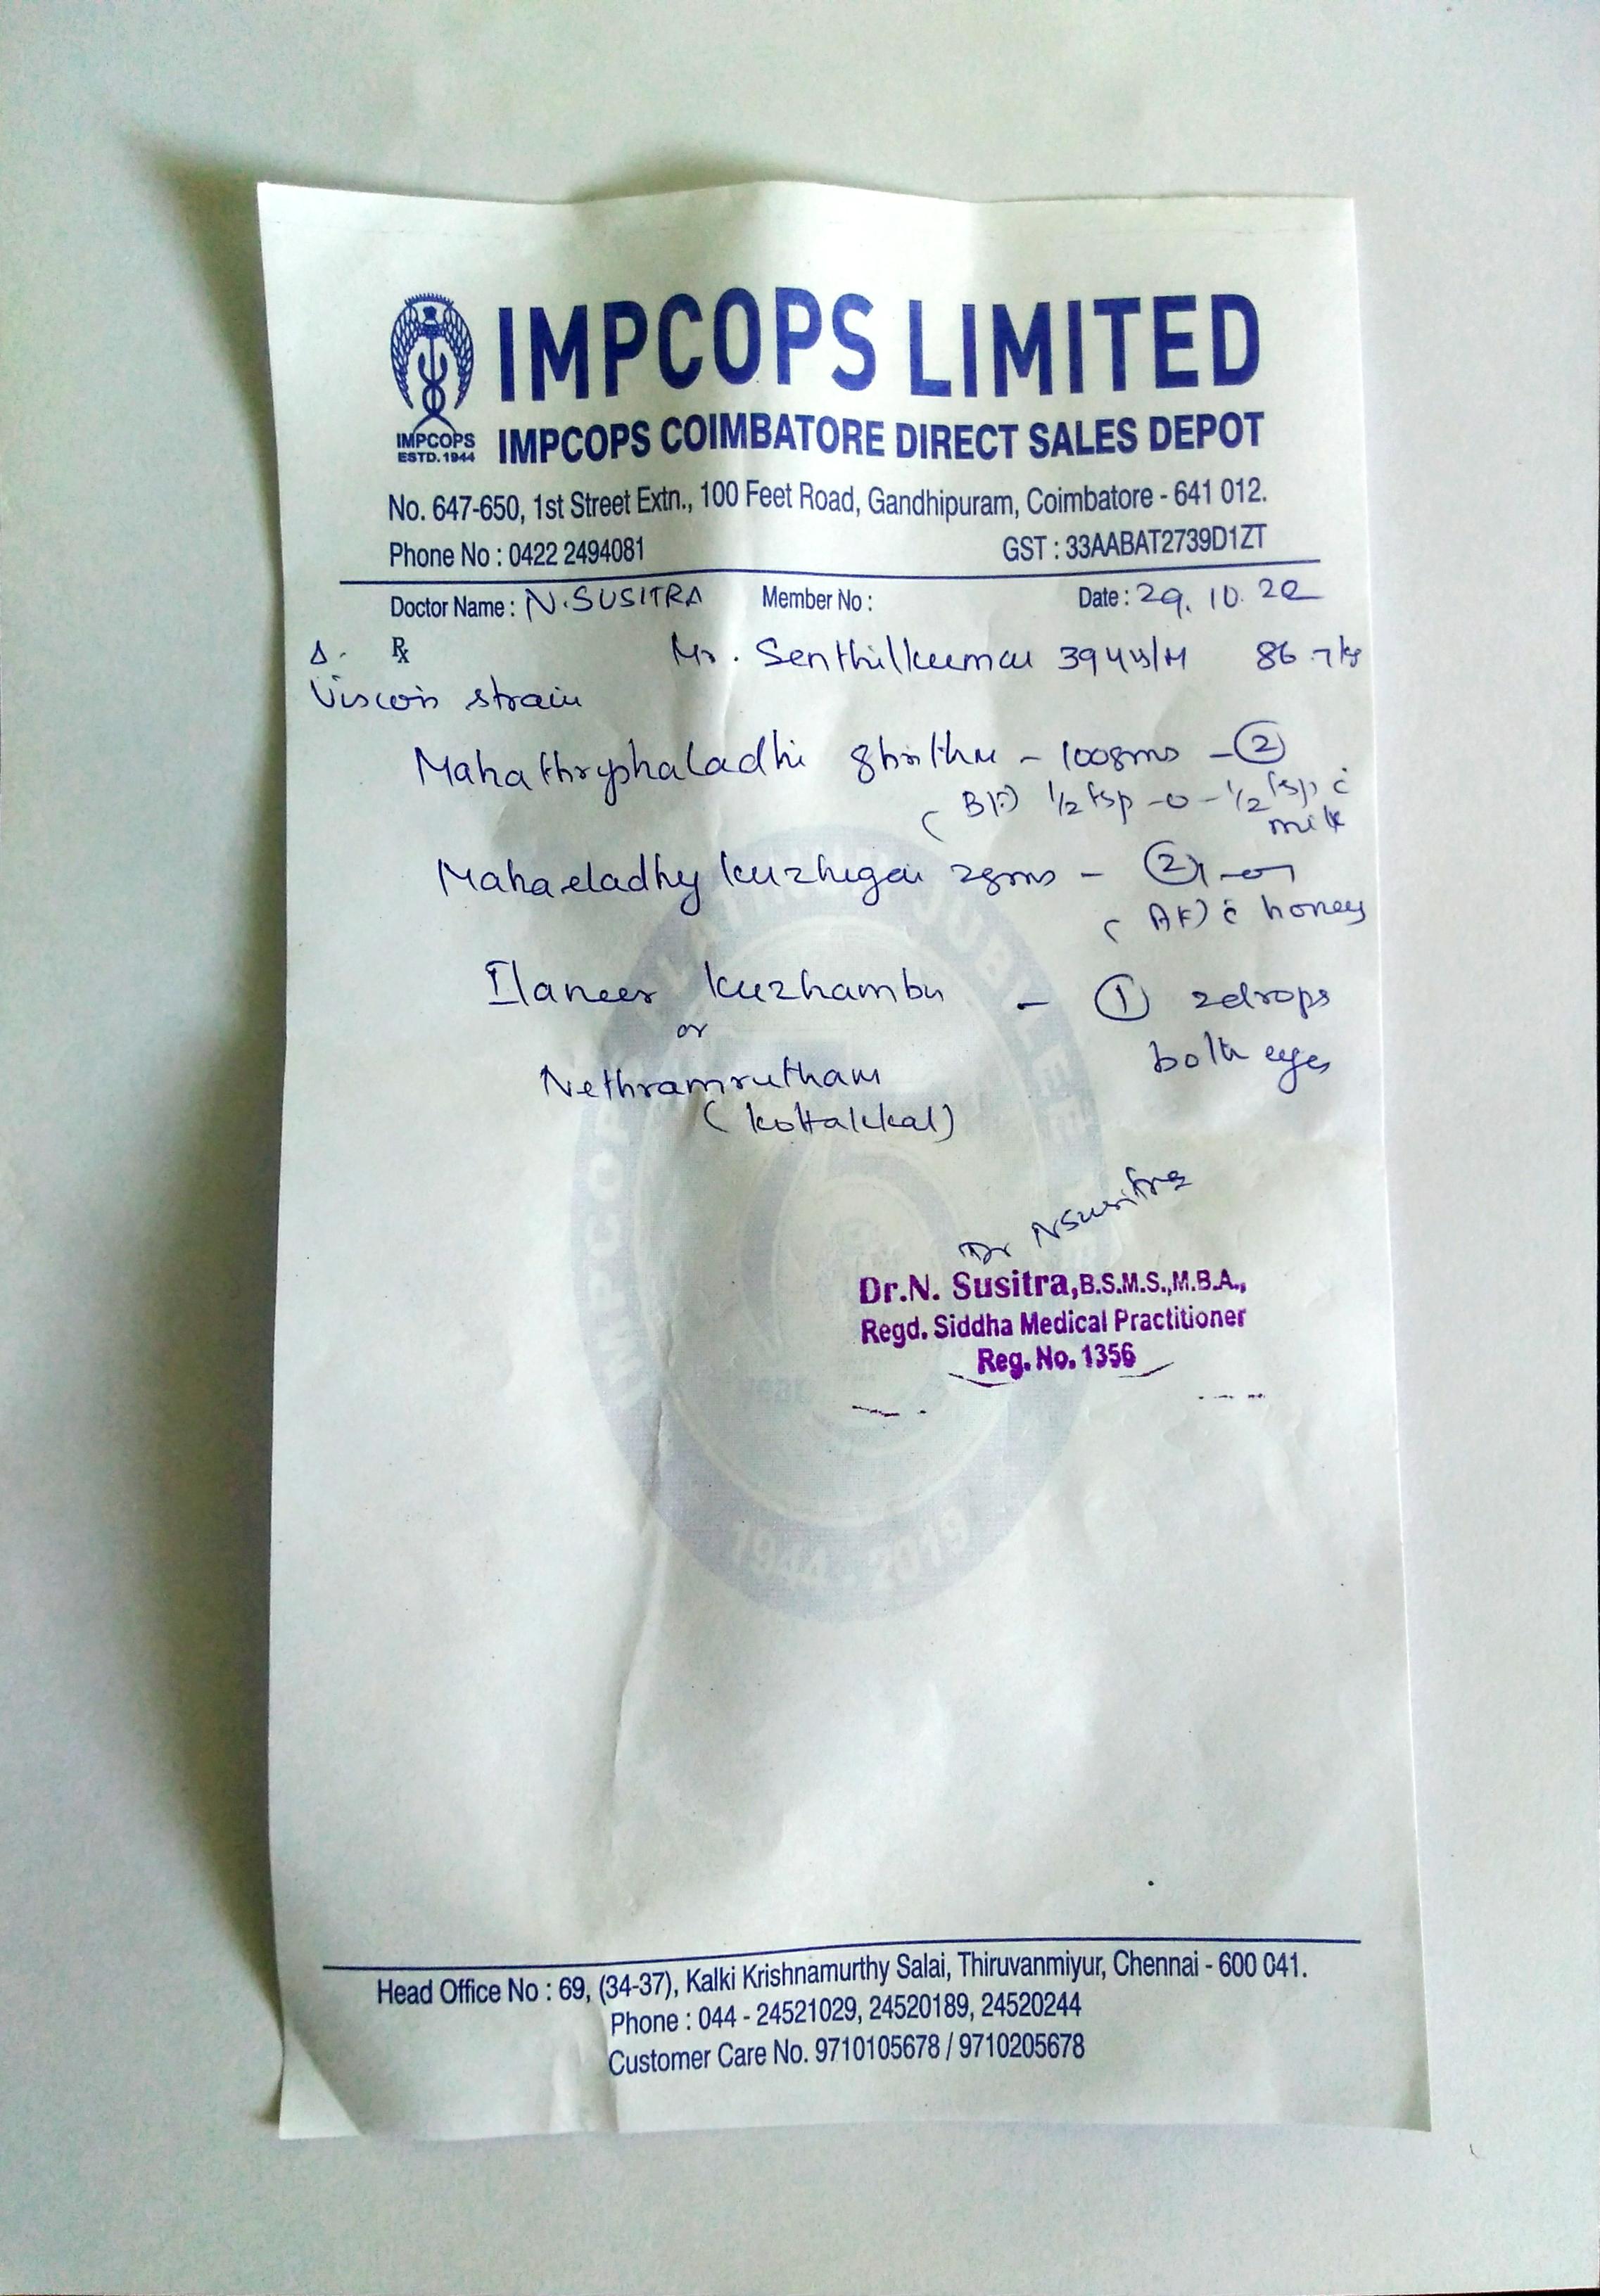 IMPCOPS LIMITED
IMPCOPS
ESTD. 1944
IMPCOPS COIMBATORE DIRECT SALES DEPOT
No. 647-650, 1st Street Extn., 100 Feet Road, Gandhipuram, Coimbatore - 641 012.
Phone No : 0422 2494081 GST : 33AABAT2739D1ZT
Doctor Name : N. SUSITRA Member No : Date : 29. 10. 22
Δ. ℞ Mr. Senthilkumar 39 yrs/M 86.7 kg
strain
Mahathryphaladhi ghrithm - 100gms - ②
(BF) 1/2 tsp - 0 - 1/2 tsp c̄
milk
Mahaeladhy kuzhigai 2gms - ②
(AF) c̄ honey
Ilaneer kuzhambu - ① 2drops
or both eyes
Nethramrutham
(kottakkal)
Dr NSusitra
Dr.N. Susitra, B.S.M.S.,M.B.A.,
Regd. Siddha Medical Practitioner
Reg. No. 1356
1944 - 2019
Head Office No : 69, (34-37), Kalki Krishnamurthy Salai, Thiruvanmiyur, Chennai - 600 041.
Phone : 044 - 24521029, 24520189, 24520244
Customer Care No. 9710105678 / 9710205678